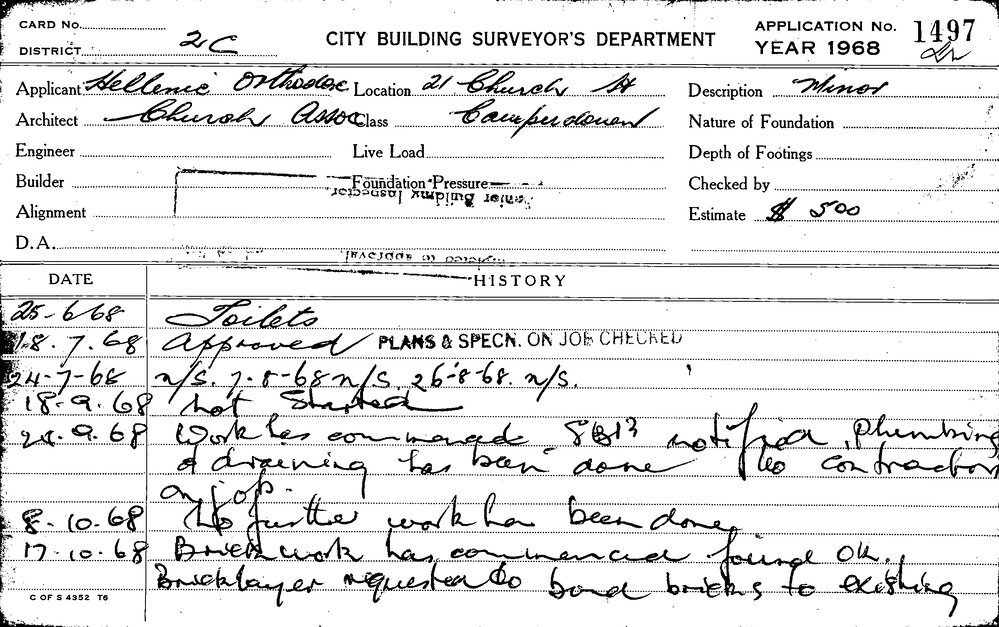 CARD No.
DISTRICT 2C
CITY BUILDING SURVEYOR'S DEPARTMENT
APPLICATION No. 1497
YEAR 1968
Applicant Hellenic Orthodox Location 21 Church St Description Minor
Architect Church Assoc Class Camperdown Nature of Foundation
Engineer Live Load Depth of Footings
Builder Foundation Pressure Checked by
Senior Building Inspector.
Alignment Estimate $ 500
D.A.
DATE HISTORY
25-6-68 Toilets
18.7.68 Approved PLANS & SPECN. ON JOB CHECKED
24-7-68 n/s. 7-8-68 n/s. 26-8-68. n/s.
18-9.68 not Started
24.9.68 Work has commenced notified, Plumbing
& draining has been done No contractors
on job.
8-10-68 No further work has been done,
17-10-68 Brickwork has commenced found OK.
Bricklayer requested to bond bricks to existing
C OF S 4352 T6